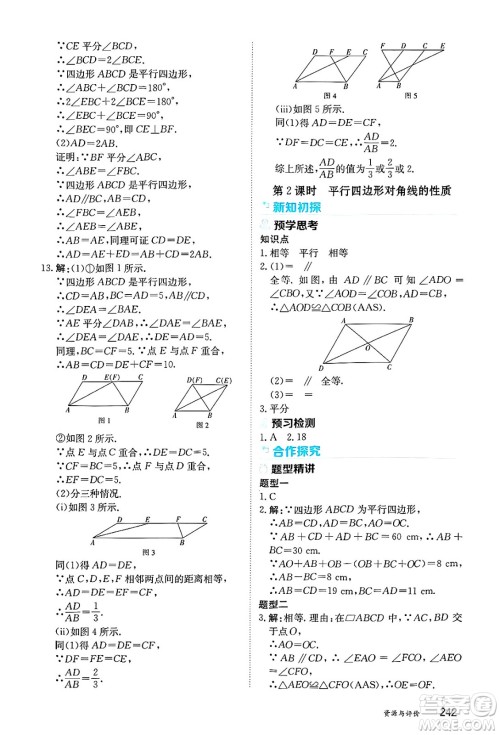 ∵CE平分∠BCD,
∴∠BCE=∠DCE.
∵四边形 ABCD 是平行四边形,
∴∠ABC+∠BCD=180°,
∴2∠EBC+2∠BCE=180°,
∴∠EBC+∠BCE=90°.
(2)AD=2AB.
证明:∵BF平分∠ABC,
∴∠ABF=∠CBF.
∵四边形 ABCD 是平行四边形,
∴AD∥BC,AD=BC,
∴∠AEB=∠CBE,
∴∠AEB=∠ABE,
∴AB=AE,同理可证 CD=DE,
∴AD=AE+DE=2AB.
13.解:(1)①如图1所示.
∵四边形 ABCD 是平行四边形,
∴CD=AB=5,AB∥CD,
∴∠DEA=∠BAE.
∵AE平分∠DAB,∴∠DAE=∠BAE,
∴∠DEA=∠DAE,∴AD=DE=5.
同理,BC=CF=5.
∵点E与点F重合,
∴AB=CD=DE+CF=10.
D E(F) C
A B
图1
D C(E) (F)
A B
图2
②如图2所示.
∵点E与点C重合,
∴DE=DC=5.
∵CF=BC=5,
∴点F与点D重合,
∴EF=DC=5.
(2)分三种情况.
(ⅰ)如图3所示.
D E F C
A B
图3
同(1)得 AD=DE,
∵点C,D,E,F相邻两点间的距离相等,
∴AD=DE=EF=CF,
∴AD/AB=1/3.
(ⅱ)如图4所示.
同(1)得 AD=DE=CF.
∵DF=FE=CE,
∴AD/AB=2/3.
D F E C
A B
图4
F D C E
A B
图5
(ⅲ)如图5所示.
同(1)得 AD=DE=CF.
∵DF=DC=CE,∴AD/AB=2.
综上所述,AD/AB的值为1/3或2/3或2.
第2课时 平行四边形对角线的性质
新知初探
预学思考
知识点
1.相等 平行 相等
2.(1)= ∥
全等.如图,由 AD∥BC,得∠ADO=
∠CBO,又∠AOD=∠COB,AD=BC,
∴△AOD≌△COB(AAS).
A D
O
B C
(2)= ∥ 全等.
3.平分
预习检测
1.A 2.18
合作探究
题型精讲
题型一
1.C
2.解:∵四边形ABCD是平行四边形,
∴AB=CD,AD=BC,AO=OC.
∵△OAB的周长比△OBC的周长小2,
∴AB+2=BC.
∵CD+AD+AO+OC=14,
∴AB+BC+AC=14,
∴AB+AB+2+AB=14,
∴AB=4.
题型二
3.解:相等.理由:在▱ABCD中,
AB∥CD,AO=CO,
∴∠EAO=∠FCO.
资源与评价
242